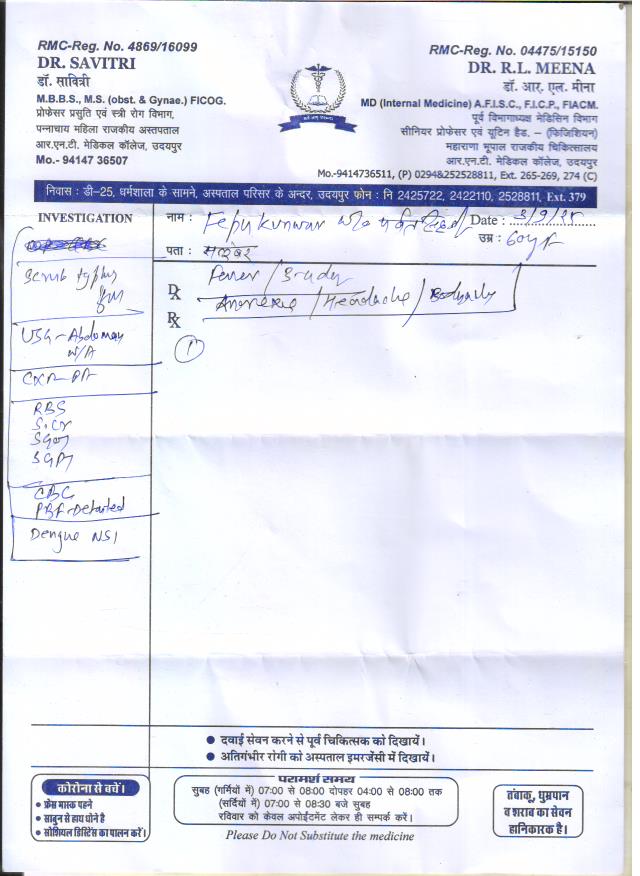 RMC-Reg. No. 4869/16099
DR. SAVITRI
डॉ. सावित्री
M.B.B.S., M.S. (obst. & Gynae.) FICOG.
प्रोफेसर प्रसुति एवं स्त्री रोग विभाग,
पन्नाधाय महिला राजकीय अस्तपताल
आर.एन.टी. मेडिकल कॉलेज, उदयपुर
Mo.- 94147 36507
RMC-Reg. No. 04475/15150
DR. R.L. MEENA
डॉ. आर. एल. मीना
MD (Internal Medicine) A.F.I.S.C., F.I.C.P., FIACM.
पूर्व विभागाध्यक्ष मेडिसिन विभाग
सीनियर प्रोफेसर एवं यूटिन हैड. – (फिजिशियन)
महाराणा भूपाल राजकीय चिकित्सालय
आर.एन.टी. मेडिकल कॉलेज, उदयपुर
Mo.-9414736511, (P) 0294&252528811, Ext. 265-269, 274 (C)
निवास : डी-25, धर्मशाला के सामने, अस्पताल परिसर के अन्दर, उदयपुर फोन : नि 2425722, 2422110, 2528811, Ext. 379
INVESTIGATION
नाम : Kunwar w/o Date :
उम्र : 60yr
पता :
Scrub typhus
IgM
USG - Abdomen
W/A
CXR-PA
RBS
S.Cr
SGOT
SGPT
CBC
PBF-Detailed
Dengue NS1
Dx Fever / 3 day
Anorexia / Headache / Bodyache
Rx
1
दवाई सेवन करने से पूर्व चिकित्सक को दिखायें।
अतिगंभीर रोगी को अस्पताल इमरजेंसी में दिखायें।
कोरोना से बचें।
फ्रेस मास्क पहने
साबुन से हाथ धोने है
सोशियल डिस्टिेंस का पालन करें।
परामर्श समय
सुबह (गर्मियों में) 07:00 से 08:00 दोपहर 04:00 से 08:00 तक
(सर्दियों में) 07:00 से 08:30 बजे सुबह
रविवार को केवल अपोईंटमेंट लेकर ही सम्पर्क करें।
Please Do Not Substitute the medicine
तंबाकू, धुम्रपान
व शराब का सेवन
हानिकारक है।